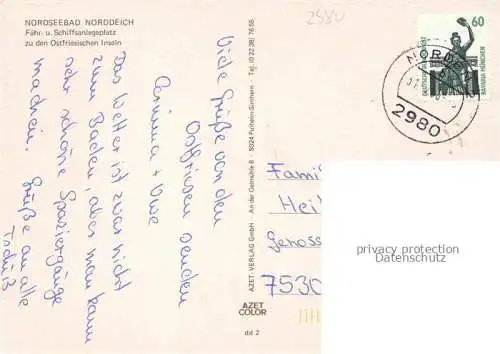 NORDSEEBAD NORDDEICH
Fähr- u. Schiffsanlegeplatz
zu den Ostfriesischen Inseln
2980
Viele Grüße von den
Ostfriesen senden
+ Uwe
Das Wetter ist zwar nicht
zum Baden, aber man kann
sehr schöne Spaziergänge
machen. Grüße an alle
Tschüß
AZET VERLAG GmbH · An der Gemühle 8 · 5024 Pulheim-Sinthern · Tel. (0 22 38) 76 55
AZET
COLOR
dd 2
60
DEUTSCHE BUNDESPOST
BAVARIA MÜNCHEN
NORDEN
2980
Famil
Hei
Genoss
7530
privacy protection
Datenschutz